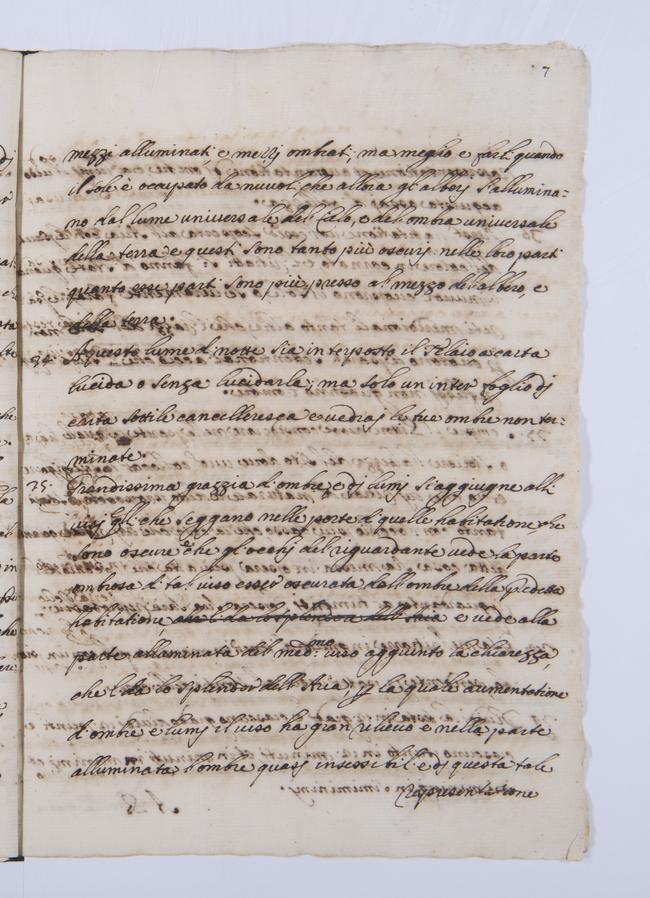 7
mezzi alluminati, e mezzi ombrati; ma meglio e farti quando
il sole è occupato da nuvoli, che allora gl'alberi s'allumina=
no dal lume universale del Cielo, e del ombra universale
della terra e questi sono tanto più oscurj nelle loro parti
quanto esse parti sono più presso al mezzo del albero, e
della terra.
24. A questo lume di notte sia interposto il Telaio a carta
lucida o senza lucidarla, ma solo un inter foglio dj
carta sottile cancelleresca e vedraj le tue ombre non ter=
minate.
25. Grandissima grazzia d'ombre, e dj lumj s'aggiugne alli
visj gli che seggano nelle porte di quelle habitatione, che
sono oscure e che gl'occhj del riguardante vede la parte
ombrosa di tal viso esser oscurata dall'ombre della predetta
habitatione che li da lo splendor dell'Aria e vede alla
parte alluminata del med:mo viso aggiunto la chiarezza,
che li da lo splendor dell'Aria, p la quale aumentatione
d'ombre e lumj il viso ha gran rilievo e nella parte
alluminata l'ombre quasj insensibili e dj questa tale
representatione